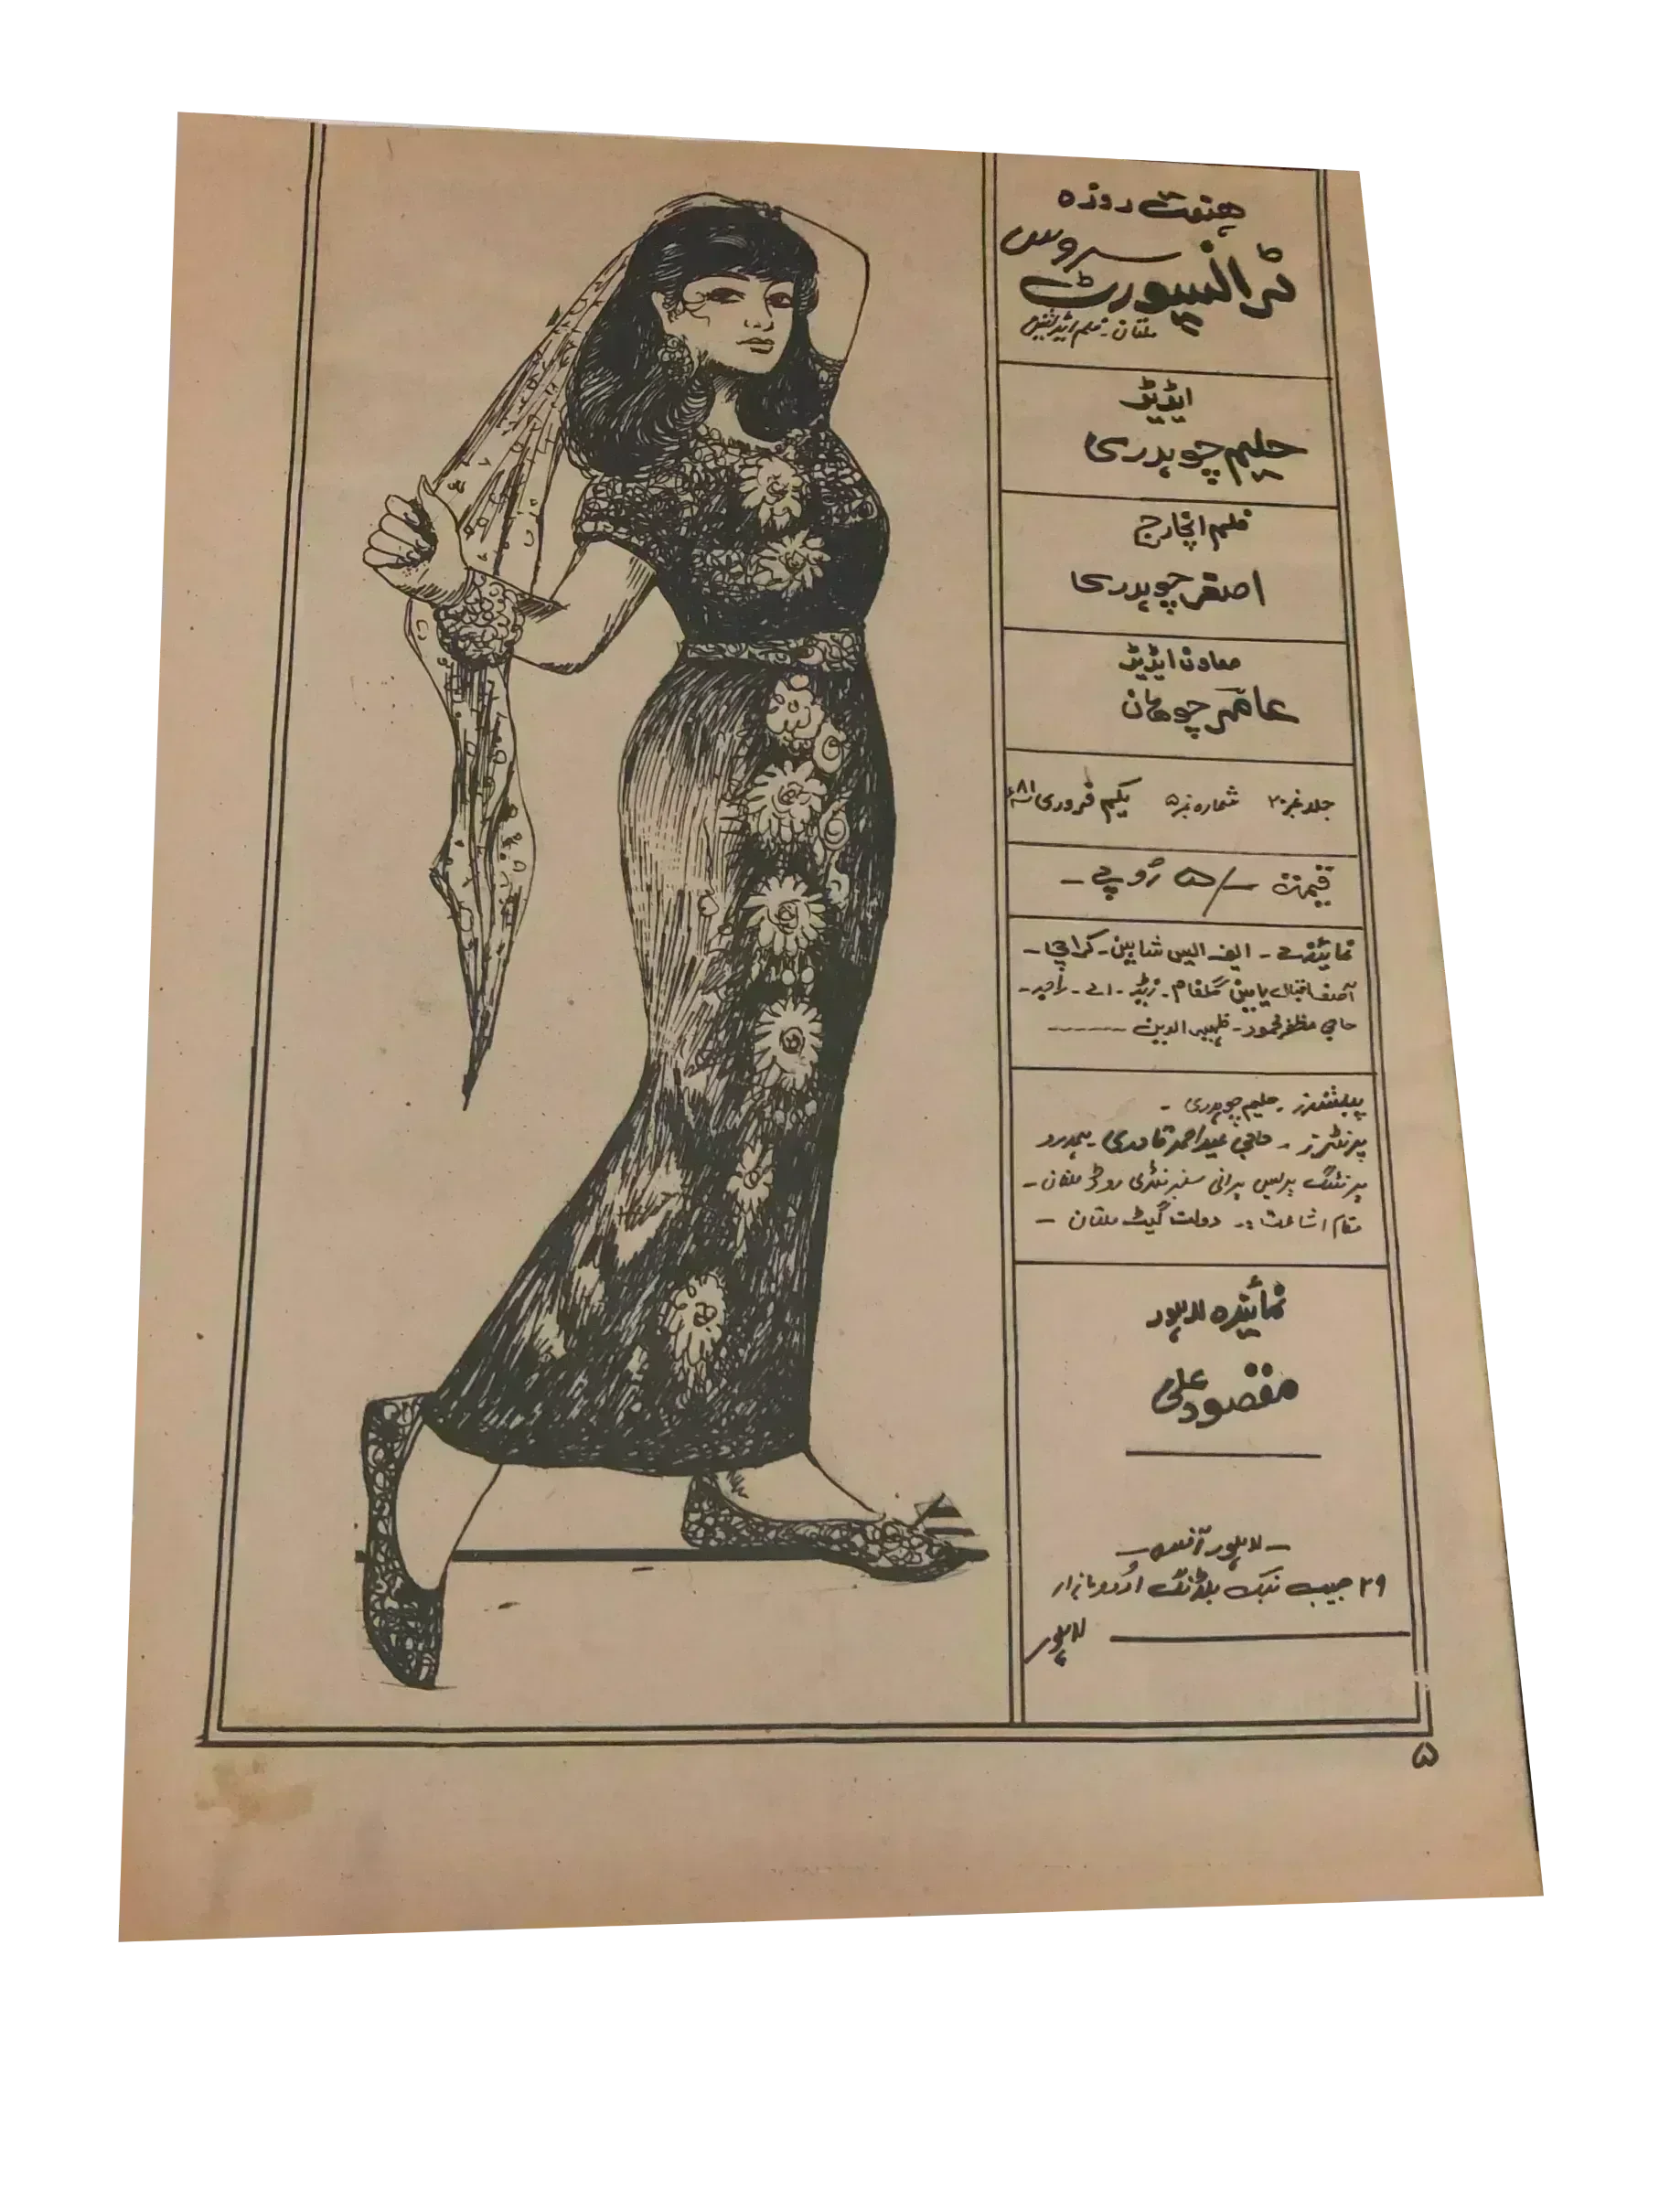 ہفت روزہ
ٹرانسپورٹ سروس
ملتان۔ فلم ایڈیشن
ایڈیٹر
حلیم چوہدری
فلم انچارج
اصغر چوہدری
معاون ایڈیٹر
عامر چوهان
جلد نمبر ۲۰ شمارہ نمبر ۵ یکم فروری ۸۱ء
قیمت ۵/- روپے -
نمائیندے - ایف ایس شاہین - کراچی -
آصف اقبال یابین گلفام - زیڈ - اے - زاہد -
حاجی مظفر محمود - ظہیر الدین ------
پبلشرز - حلیم چوہدری -
پرنٹرز - حاجی عید احمد قادری ہمدرد
پرنٹنگ پریس پرانی سبزی منڈی روڈ ملتان -
مقام اشاعت :- دولت گیٹ ملتان -
نمائیندہ لاہور
مقصود علی
- لاہور آفس -
۲۹ حبیب بنک بلڈنگ اُردو بازار
لاہور
۵